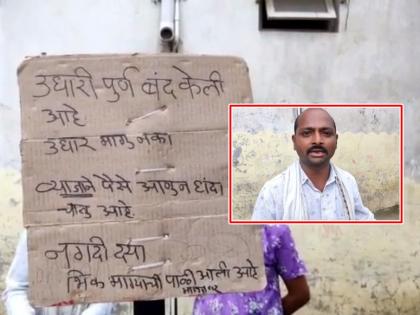 उधारी पुर्ण बंद केली
आहे
उधार मागु नका
व्याजाने पैसे आणुन धंदा
चालु आहे
नगदी दया
भिक मागायची पाळी आली आहे